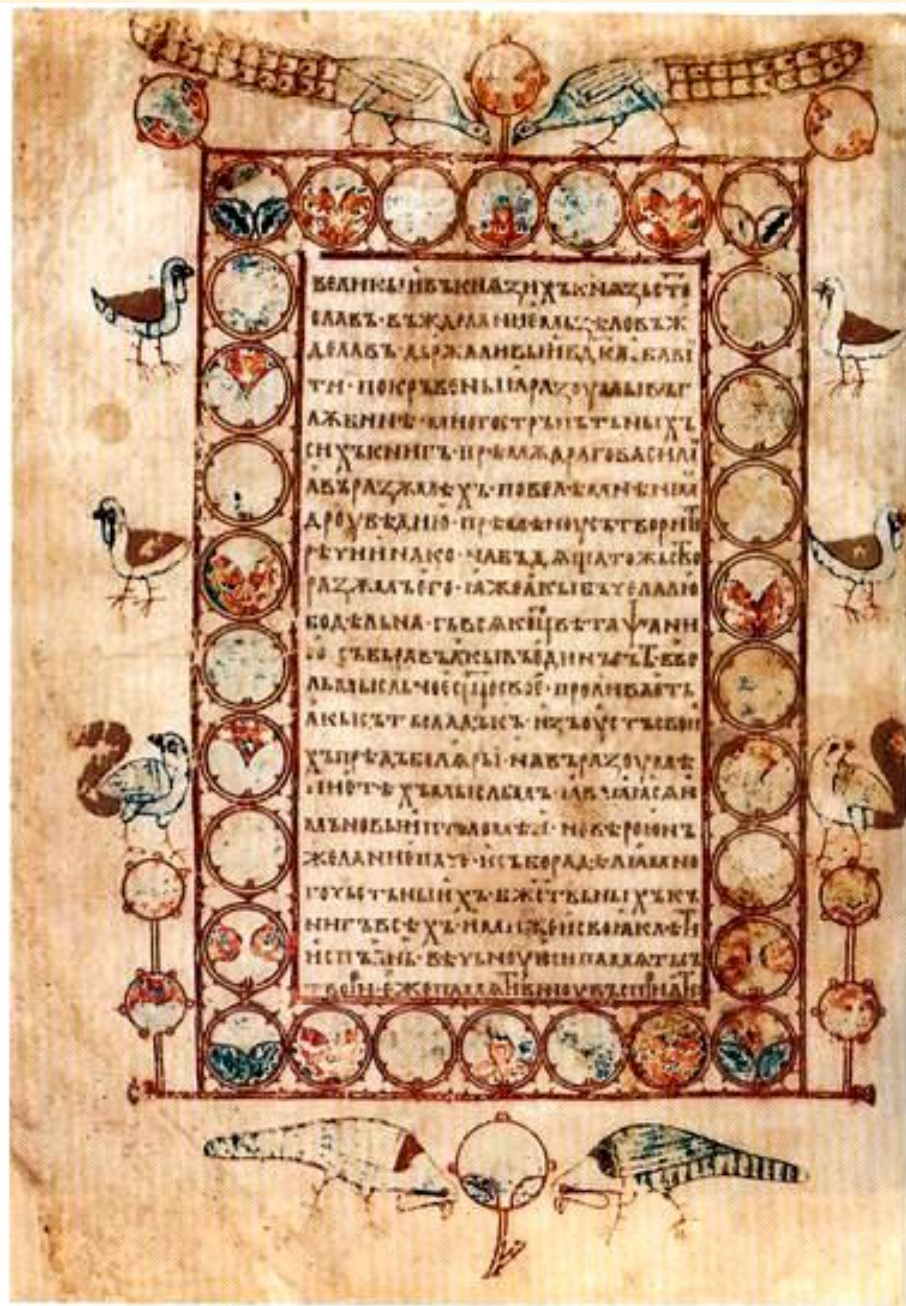 великꙑи въ кнѧзихъ кнѧзь ст҃о
славъ · въжделаниемь ꙁѣло въж
делавъ · дьржаливꙑи вл҃дка · обави
ти · покръвенꙑꙗ раꙁоумꙑ въ гл
ѫбинѣ · многостръпътьнꙑхъ
сихъ книгъ · прѣмѫдраго василꙗ
въ раꙁѫмѣхъ · повелѣ мьнѣ нем
дроувѣдию · прѣмѣноу сътворити
рѣчи инако · набъдѧща тожьство
раꙁѫмъ его · ꙗже акꙑ бъчела лю
бодѣльна · съ всякого цвѣта
събьравъ акꙑ въ единъ сътъ · въ ве
льмꙑсльное срдце свое · проливаеть
акꙑ сътъ сладъкъ · иꙁ оустъ свои
хъ прѣдъ болярꙑ · на въраꙁоумѣ
ние тѣхъ мꙑсльмъ · ꙗвляꙗся и
мъ новꙑи птоломѣи · не вѣрою нъ
желаниемь паче · и събора дѣля мно
гочьстьнꙑихъ · божствьнꙑхъ къ
нигъ всѣхъ · ими же и своꙗ клѣти
испълнь · вѣчьноую си память съ
твори · еже памяти виноу въсприяти